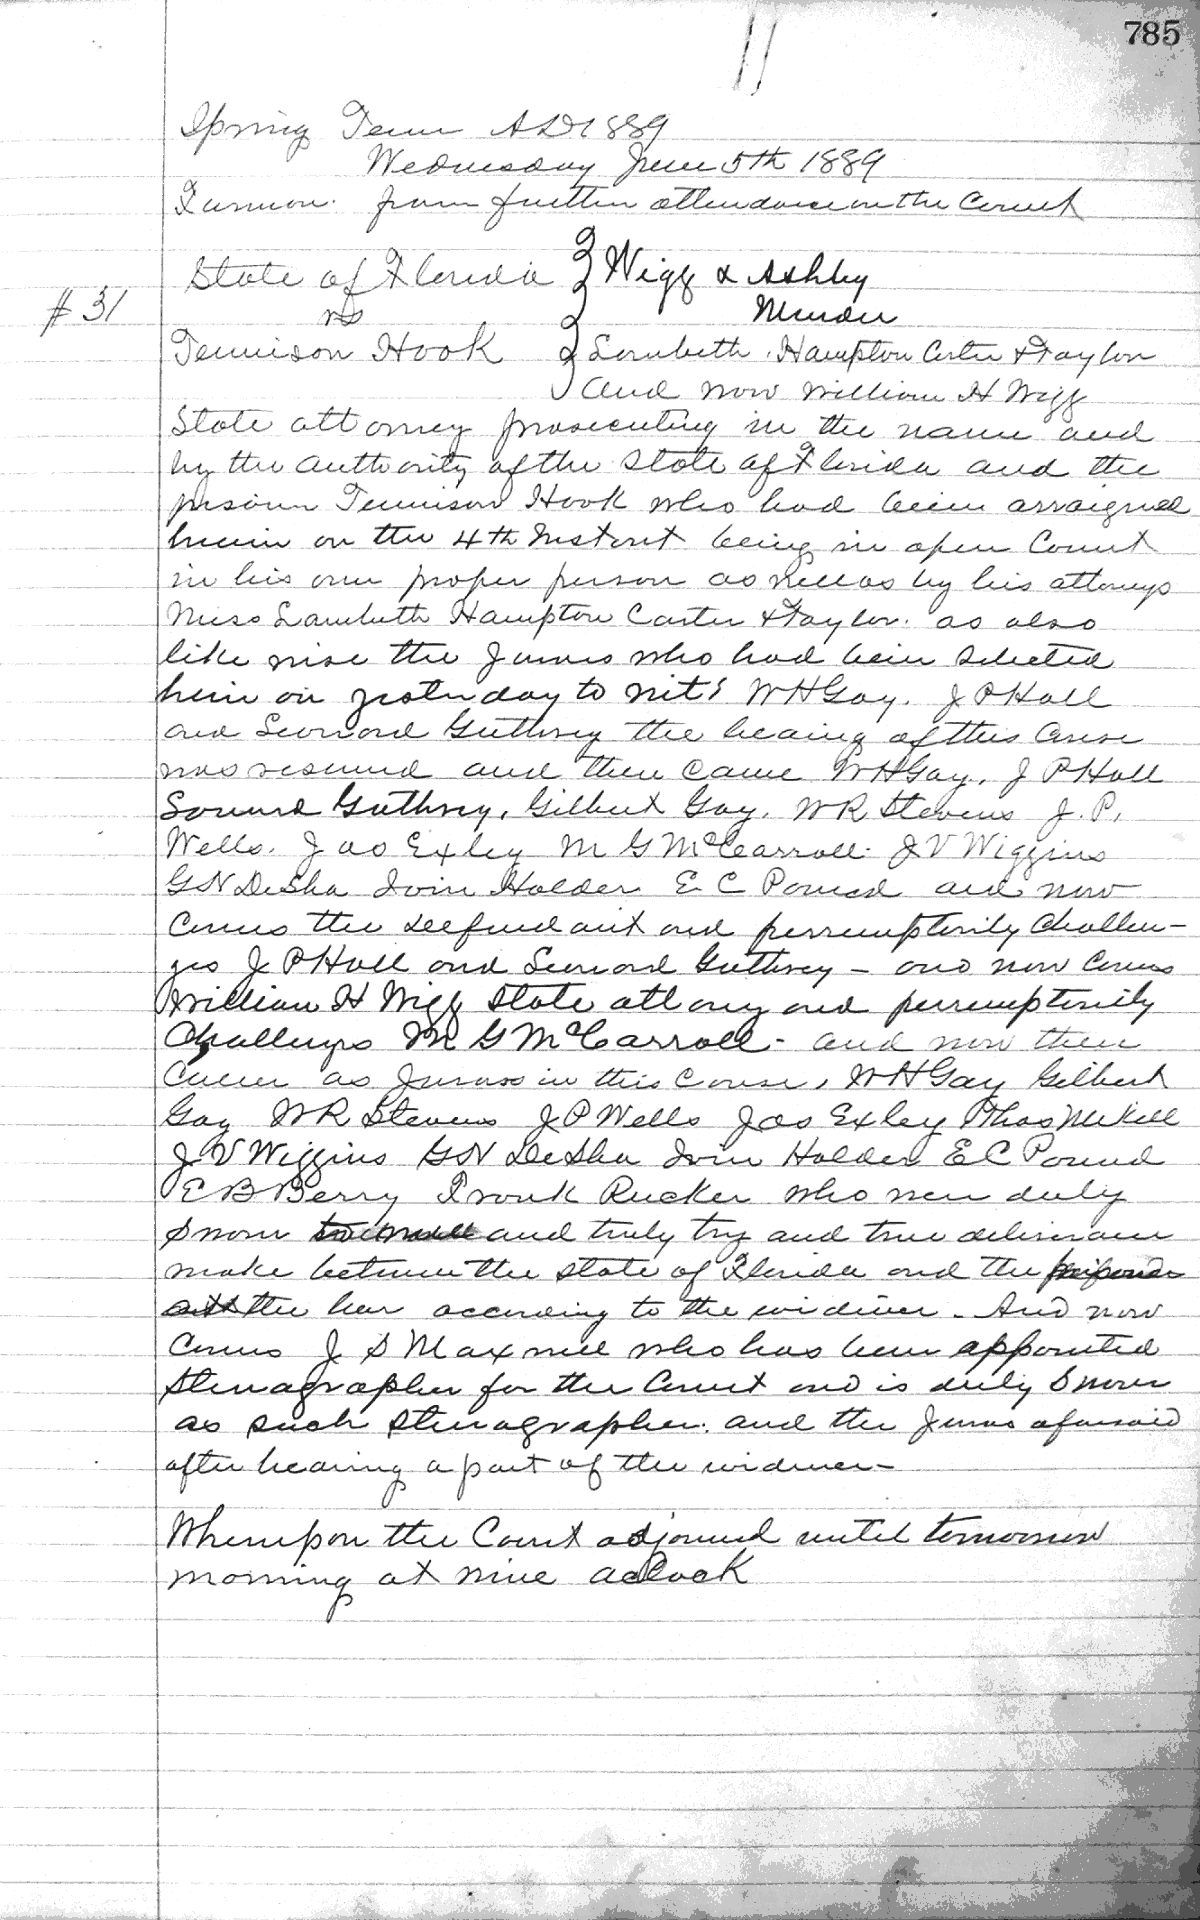 785
Spring Term AD 1889
Wednesday June 5th 1889
from further attendance on the Court
State of Florida } Wigg & Ashley
# 31
vs Murder
Tennison Hook } Lambeth, Hampton Carter & Taylor
and now William H Wigg
State attorney prosecuting in the name and
by the authority of the State of Florida and the
prisoner Tennison Hook who had been arraigned
herein on the 4th Instant being in open Court
in his own proper person as well as by his attorneys
Mess Lambeth Hampton Carter & Taylor. as also
like wise the Jurors who had been selected
herein on yesterday to wit: W H Gay. J P Hall
and Leonard Guthrey the hearing of this Cause
was resumed and then came W H Gay, J P Hall
Leonard Guthrey, Gilbert Gay. W R Stevens J. P.
Wells. Jas Exley M G McCarroll. J V Wiggins
G N DeSha Irvin Holder E C Pound and now
Comes the Deefendant and perremptorily Challen-
ges J P Hall and Leonard Guthrey - and now Comes
William H Wigg State attorney and perremptorily
Challenges M G McCarroll - and now then
Came as Jurors in this Cause, W H Gay Gilbert
Gay W R Stevens J P Wells Jas Exley Thos Mikell
J V Wiggins G N DeSha Irvin Holder E C Pound
E B Berry Frank Rucker who were duly
Sworn to well and truly try and true deliverance
make between the State of Florida and the prisoner
att the bar according to the evidence - And now
Comes J S Maxwell who has been appointed
Stenographer for the Court and is duly Sworn
as such Stenographer. and the Jurors aforesaid
after hearing a part of the evidence -
Whereupon the Court adjourned until tomorrow
morning at nine aclock